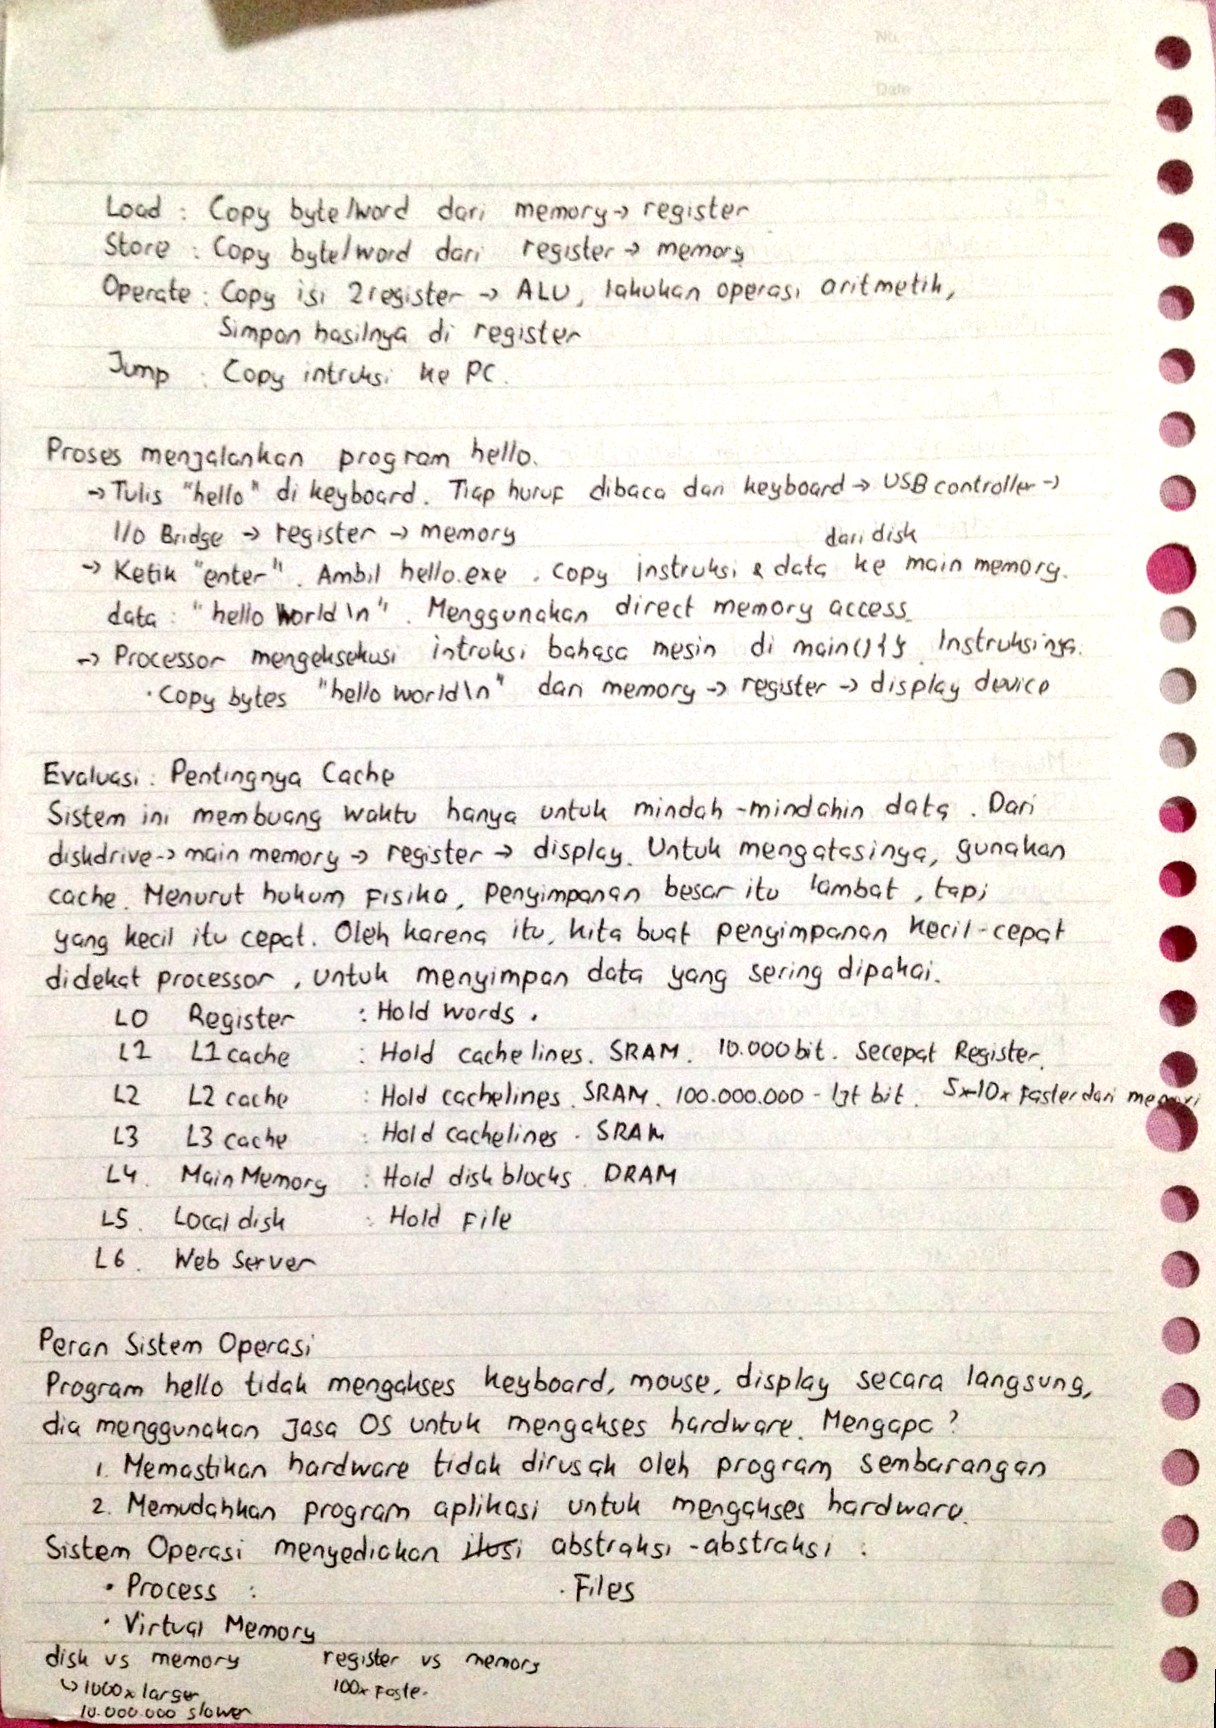 No.
Date
Load : Copy byte/word dari memory → register
Store : Copy byte/word dari register → memory
Operate : Copy isi 2 register → ALU, lakukan operasi aritmetik,
Simpan hasilnya di register
Jump : Copy intruksi ke PC.
Proses menjalankan program hello.
→ Tulis "hello" di keyboard. Tiap huruf dibaca dari keyboard → USB controller →
I/O Bridge → register → memory
dari disk
→ Ketik "enter". Ambil hello.exe. Copy instruksi & data ke main memory.
data : "hello world\n". Menggunakan direct memory access.
→ Processor mengeksekusi intruksi bahasa mesin di main(){}. Instruksinya.
• Copy bytes "hello world\n" dari memory → register → display device
Evaluasi : Pentingnya Cache
Sistem ini membuang waktu hanya untuk mindah-mindahin data. Dari
diskdrive → main memory → register → display. Untuk mengatasinya, gunakan
cache. Menurut hukum Fisika, Penyimpanan besar itu lambat, tapi
yang kecil itu cepat. Oleh karena itu, kita buat penyimpanan kecil-cepat
didekat processor, untuk menyimpan data yang sering dipakai.
L0 Register : Hold words.
L1 L1 cache : Hold cache lines. SRAM. 10.000 bit. Secepat Register.
L2 L2 cache : Hold cachelines. SRAM. 100.000.000 - bit. 5x-10x Faster dari memori
L3 L3 cache : Hold cachelines. SRAM
L4. Main Memory : Hold disk blocks. DRAM
L5. Local disk : Hold File
L6. Web Server
Peran Sistem Operasi
Program hello tidak mengakses keyboard, mouse, display secara langsung,
dia menggunakan jasa OS untuk mengakses hardware. Mengapa?
1. Memastikan hardware tidak dirusak oleh program sembarangan
2. Memudahkan program aplikasi untuk mengakses hardware.
Sistem Operasi menyediakan ilusi abstraksi-abstraksi :
• Process : • Files
• Virtual Memory
disk vs memory register vs memory
↳ 1000x larger 100x Faster
10.000.000 slower